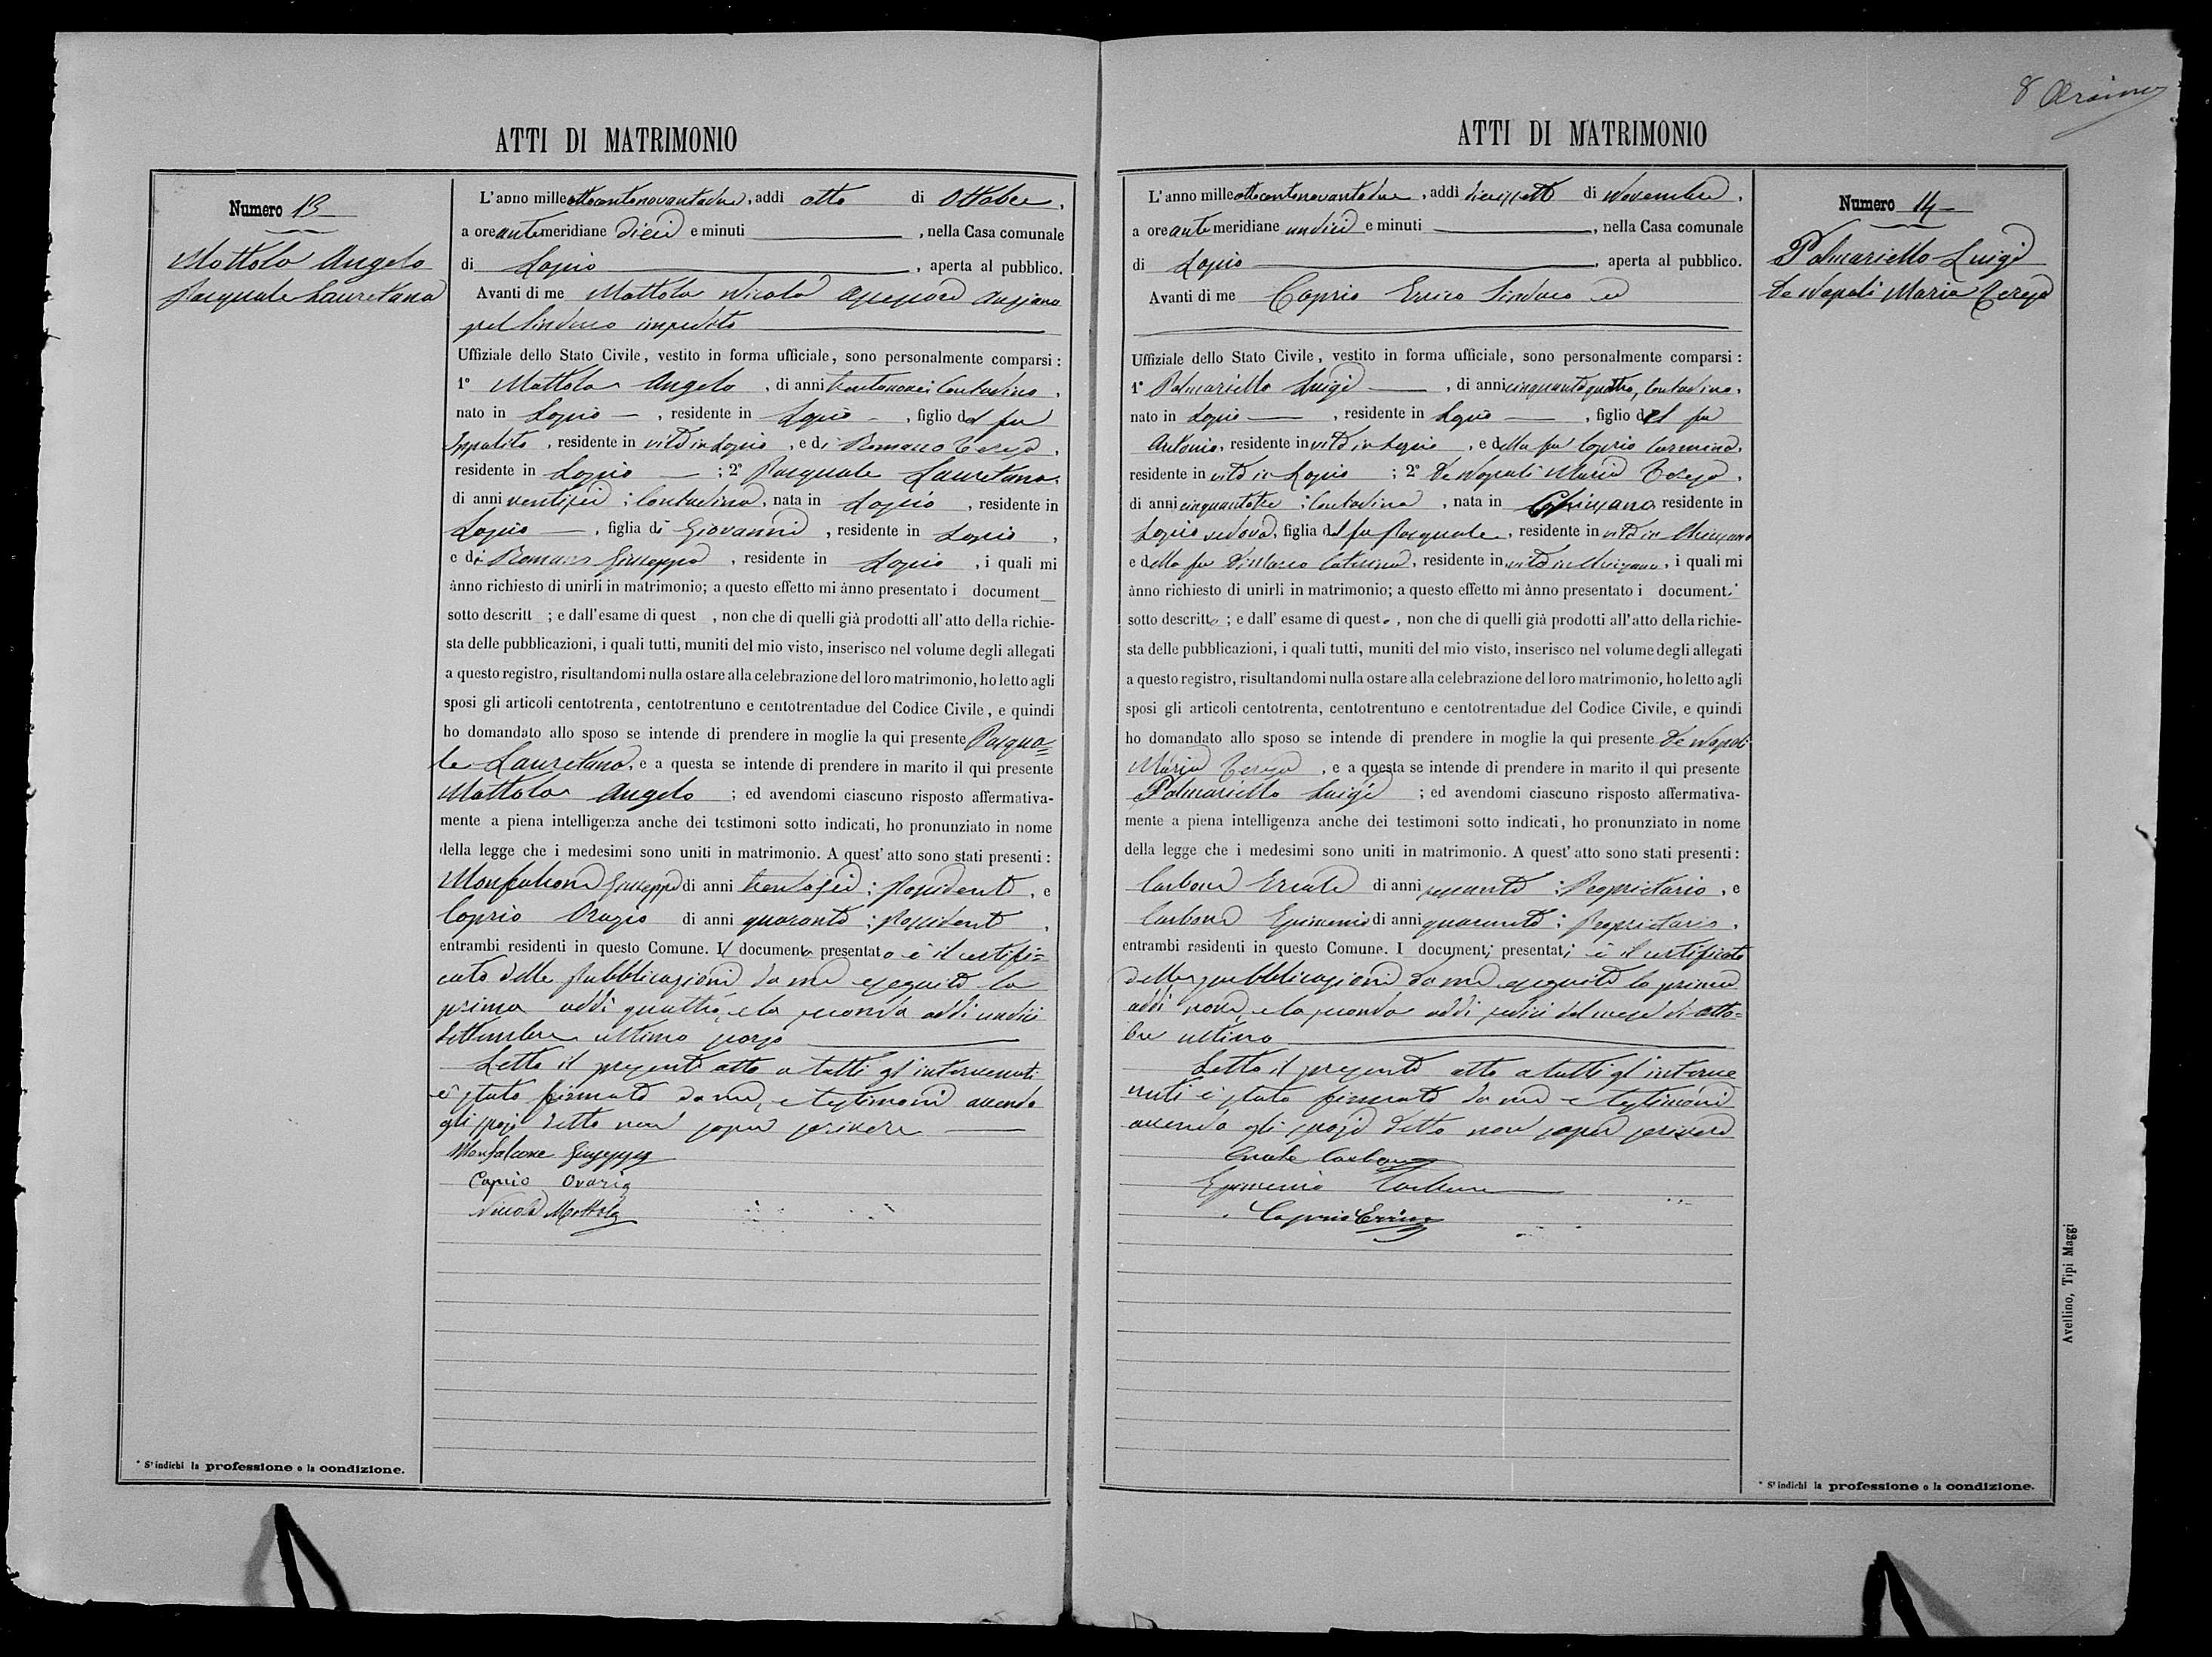 8
ATTI DI MATRIMONIO
Numero 13
Mottola Angelo
Pasquale Lauretana
L'anno milleottocentonovantadue, addì otto di Ottobre,
a ore antemeridiane dieci e minuti , nella Casa comunale
di Lapio , aperta al pubblico.
Avanti di me Mottola Nicola Assessore Anziano
pel Sindaco impedito
Uffiziale dello Stato Civile, vestito in forma ufficiale, sono personalmente comparsi:
1° Mottola Angelo , di anni Contadino,
nato in Lapio , residente in Lapio , figlio del fu
Ippolito , residente in vita in Lapio , e di Romano Teresa,
residente in Lapio ; 2° Pasquale Lauretana,
di anni ventisei ; Contadina, nata in Lapio , residente in
Lapio , figlia di Giovanni , residente in Lapio ,
e di Romano Giuseppa , residente in Lapio , i quali mi
ànno richiesto di unirli in matrimonio; a questo effetto mi ànno presentato i document
sotto descritt ; e dall'esame di quest , non che di quelli già prodotti all'atto della richie-
sta delle pubblicazioni, i quali tutti, muniti del mio visto, inserisco nel volume degli allegati
a questo registro, risultandomi nulla ostare alla celebrazione del loro matrimonio, ho letto agli
sposi gli articoli centotrenta, centotrentuno e centotrentadue del Codice Civile, e quindi
ho domandato allo sposo se intende di prendere in moglie la qui presente Pasqua=
le Lauretana, e a questa se intende di prendere in marito il qui presente
Mottola Angelo ; ed avendomi ciascuno risposto affermativa-
mente a piena intelligenza anche dei testimoni sotto indicati, ho pronunziato in nome
della legge che i medesimi sono uniti in matrimonio. A quest'atto sono stati presenti:
Monfalcone Giuseppe di anni trentasei ; Possidente, e
Caprio Orazio di anni quaranta ; Possidente,
entrambi residenti in questo Comune. Il documento presentato è il certifi=
cato delle pubblicazioni da me eseguite la
prima addì quattro, e la seconda addì undici
Settembre ultimo scorso
Letto il presente atto a tutti gl'intervenuti
è stato firmato da me, e testimoni avendo
gli sposi detto non saper scrivere
Monfalcone Giuseppe
Caprio Orazio
Nicola Mottola
* S'indichi la professione o la condizione.
ATTI DI MATRIMONIO
Numero 14
Palmariello Luigi
De Napoli Maria Teresa
L'anno milleottocentonovantadue, addì diciassette di Novembre,
a ore antemeridiane undici e minuti , nella Casa comunale
di Lapio , aperta al pubblico.
Avanti di me Caprio Errico Sindaco ed
Uffiziale dello Stato Civile, vestito in forma ufficiale, sono personalmente comparsi:
1° Palmariello Luigi , di anni cinquantaquattro, Contadino,
nato in Lapio , residente in Lapio , figlio del fu
Antonio, residente in vita in Lapio , e della fu Caprio Carmina,
residente in vita in Lapio ; 2° De Napoli Maria Teresa,
di anni cinquantatre ; Contadina , nata in Chiusano residente in
Lapio vedova, figlia del fu Pasquale, residente in vita in Chiusano
e della fu Caterina, residente in vita in Chiusano, i quali mi
ànno richiesto di unirli in matrimonio; a questo effetto mi ànno presentato i documenti
sotto descritto ; e dall'esame di questo, non che di quelli già prodotti all'atto della richie-
sta delle pubblicazioni, i quali tutti, muniti del mio visto, inserisco nel volume degli allegati
a questo registro, risultandomi nulla ostare alla celebrazione del loro matrimonio, ho letto agli
sposi gli articoli centotrenta, centotrentuno e centotrentadue del Codice Civile, e quindi
ho domandato allo sposo se intende di prendere in moglie la qui presente De Napoli
Maria Teresa , e a questa se intende di prendere in marito il qui presente
Palmariello Luigi ; ed avendomi ciascuno risposto affermativa-
mente a piena intelligenza anche dei testimoni sotto indicati, ho pronunziato in nome
della legge che i medesimi sono uniti in matrimonio. A quest'atto sono stati presenti:
Carbone Ercole di anni ; Proprietario, e
Carbone Epimenio di anni quaranta ; Proprietario,
entrambi residenti in questo Comune. I documenti presentati è il certificato
delle pubblicazioni da me eseguite la prima
addì nove, e la seconda addì sedici del mese di otto=
bre ultimo
Letto il presente atto a tutti gl'interve
nuti è stato firmato da me e testimoni
avendo gli sposi detto non saper scrivere
Ercole Carbone
Epimenio Carbone
Caprio Errico
* S'indichi la professione o la condizione.
Avellino, Tipi Maggi